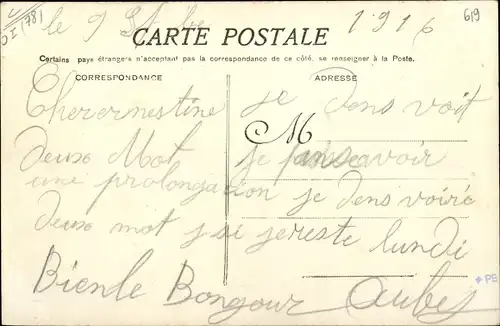 le 9 1916
619
(78)
CARTE POSTALE
Certains pays étrangers n'acceptant pas la correspondance de ce côté, se renseigner à la Poste.
CORRESPONDANCE ADRESSE
Cherernestine je Dens voit
M
deux Mot je pansavoir
une prolongacion je Dens voiré
deux mot j si jereste lundi
Bienle Bongour Aubey
*PS